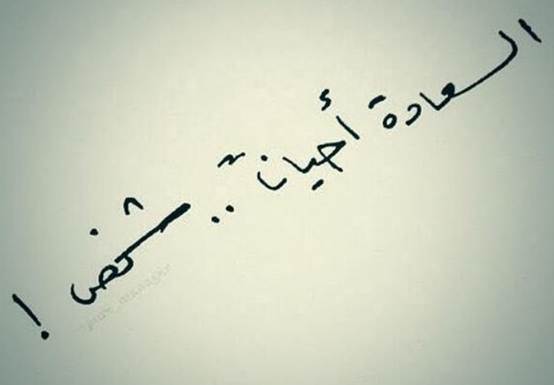 السعادة أحياناً .. شخص !